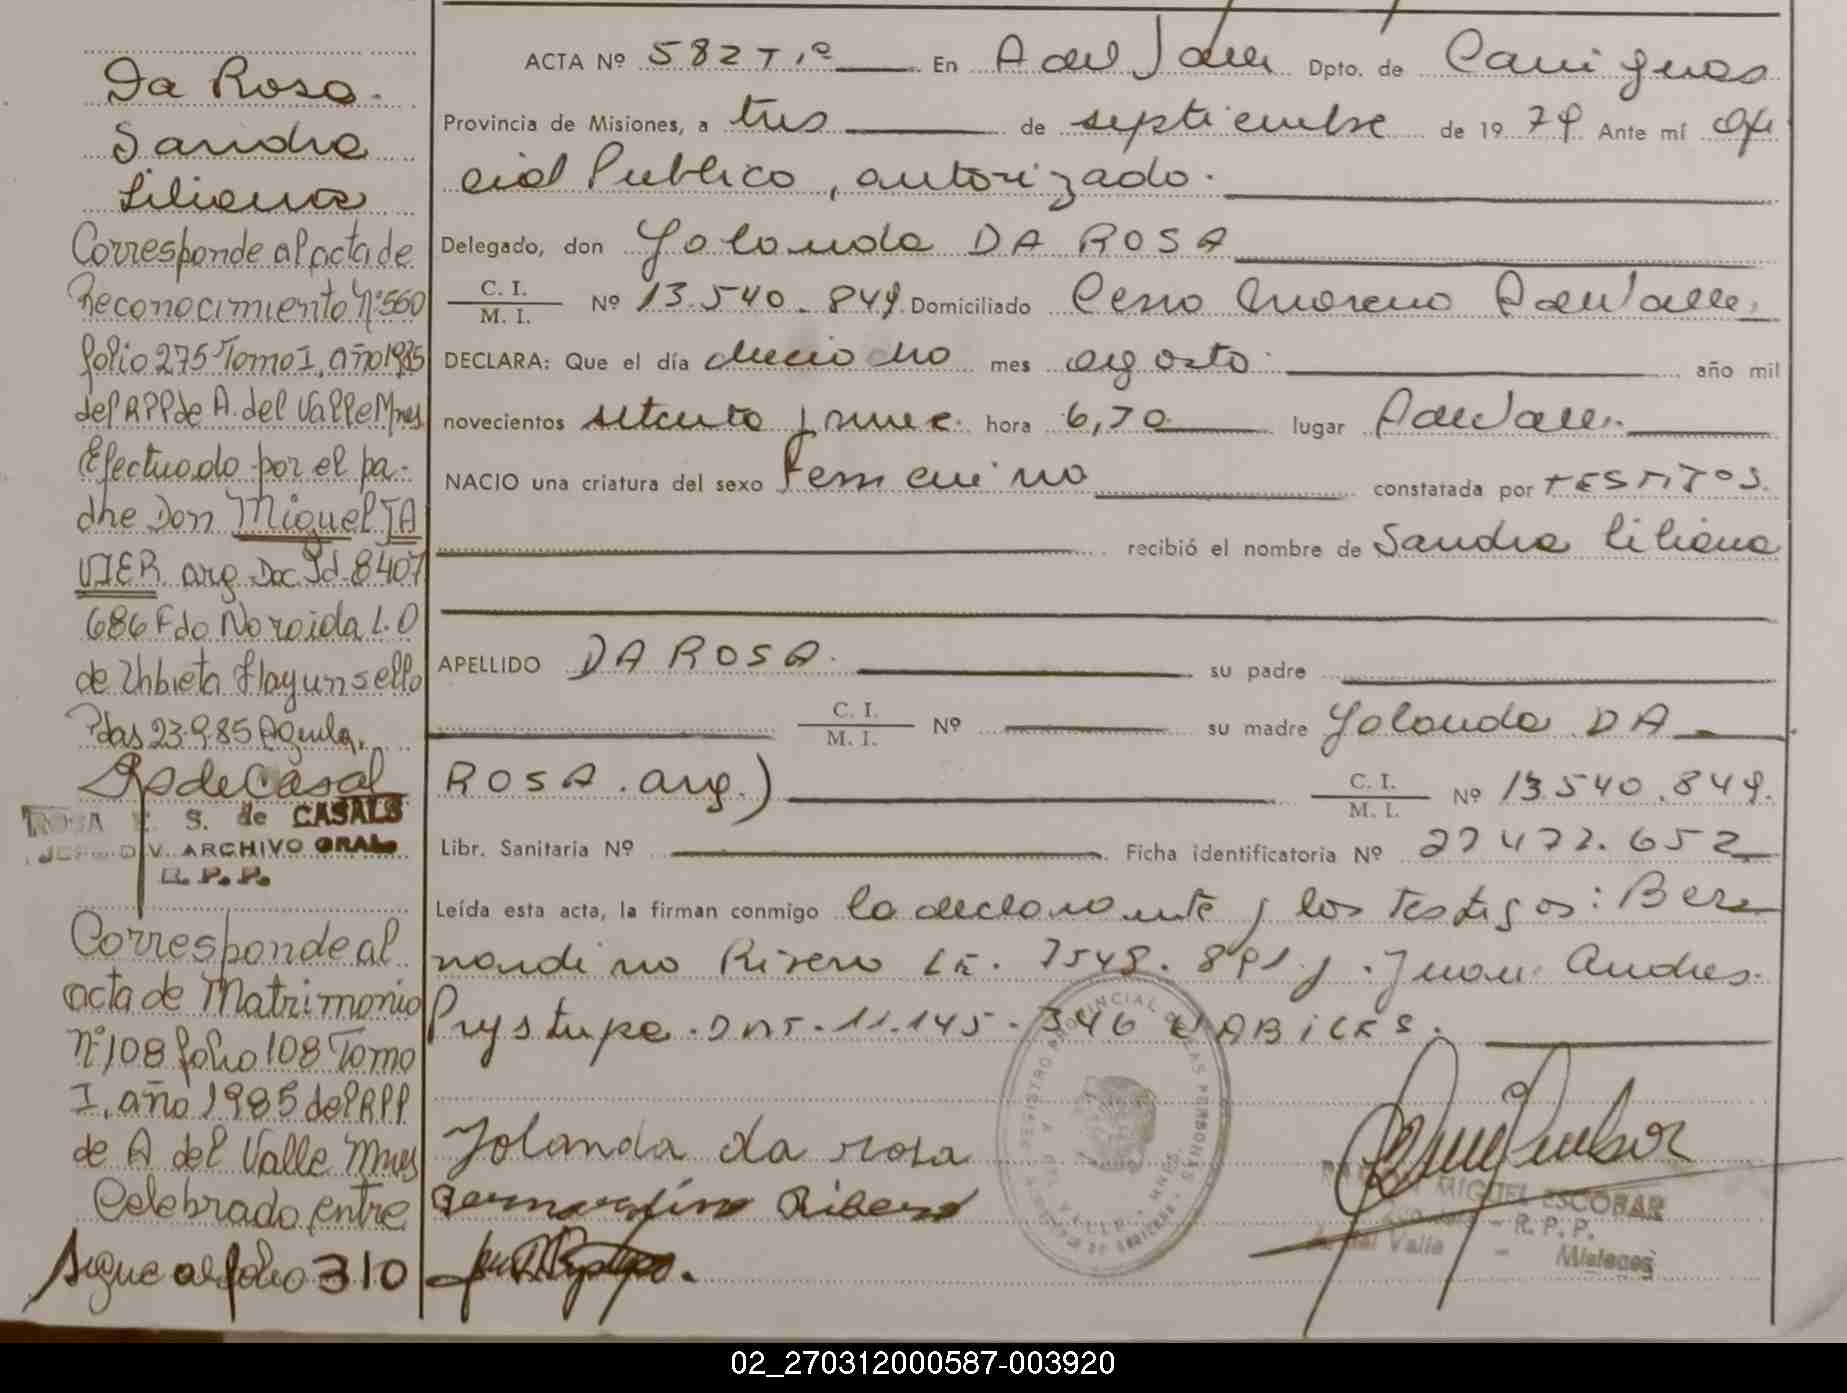 Da Rosa.
Sandra
Liliana
Corresponde al acta de
Reconocimiento Nº 560
folio 275 Tomo I, año 1985
del RPP de A. del Valle Mnes
Efectuado por el pa-
dre Don Miguel JA
VIER arg Doc Id. 8407
686 Fdo Noroida L. O
de
Pdas 23.9.85 Aguila,
RSdeCasal
ROSA E. S. de CASALS
JEFE DIV. ARCHIVO GRAL
R. P. P.
Corresponde al
acta de Matrimonio
Nº 108 folio 108 Tomo
I, año 1985 del RPP
de A del Valle Mnes
Celebrado entre
sigue al folio 310
ACTA Nº 582 Tº I En A del Valle Dpto. de Cainguas
Provincia de Misiones, a tres de septiembre de 19 79 Ante mí Ofi
cial Publico, autorizado.
Delegado, don Yolanda DA ROSA
C. I. / M. I. Nº 13.540.849. Domiciliado Cerro Moreno A del Valle,
DECLARA: Que el día dieciocho mes agosto año mil
novecientos setenta y nueve hora 6,30 lugar A del Valle.
NACIO una criatura del sexo Femenino constatada por TESTIGOS.
recibió el nombre de Sandra Liliana
APELLIDO DA ROSA. su padre
C. I. / M. I. Nº su madre Yolanda DA
ROSA. arg.) C. I. / M. I. Nº 13.540.849.
Libr. Sanitaria Nº Ficha identificatoria Nº 27 472.652
Leída esta acta, la firman conmigo la declarante y los testigos: Ber
nardino Rivero LE. 7548.891 y Juan Andres
Prystupa. DNI. 11.145.346 HABILES.
Yolanda da rosa
Bernardino Ribero
REGISTRO PROVINCIAL DE LAS PERSONAS
A. DEL VALLE - MNES.
MIGUEL ESCOBAR
R. P. P.
A. del Valle - Misiones
02_270312000587-003920